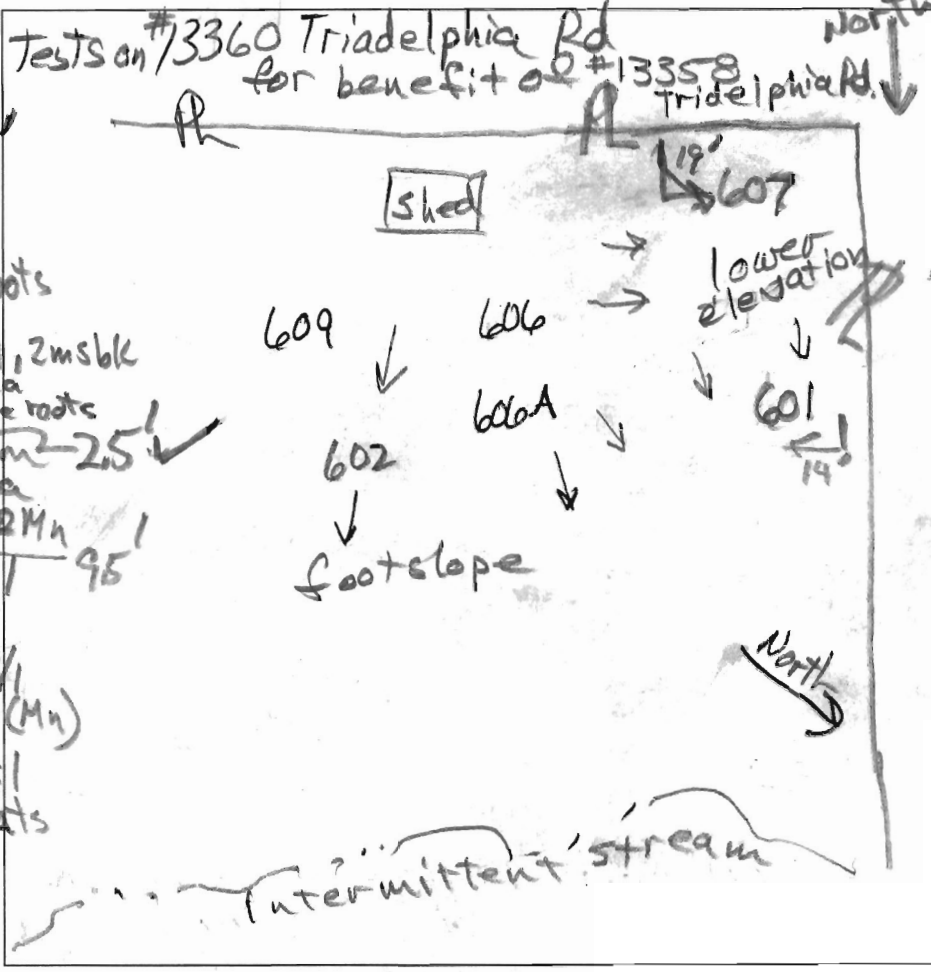 Tests on #13360 Triadelphia Rd
for benefit of #13358
Tridelphia Rd.
North
PL
PL
19'
607
Shed
lower
elevation
609
606
PL
606A
601
14'
602
footslope
North
Intermittent stream
ots
, 2msbk
a
e roots
2.5'
a
2Mn
95'
(Mn)
ts